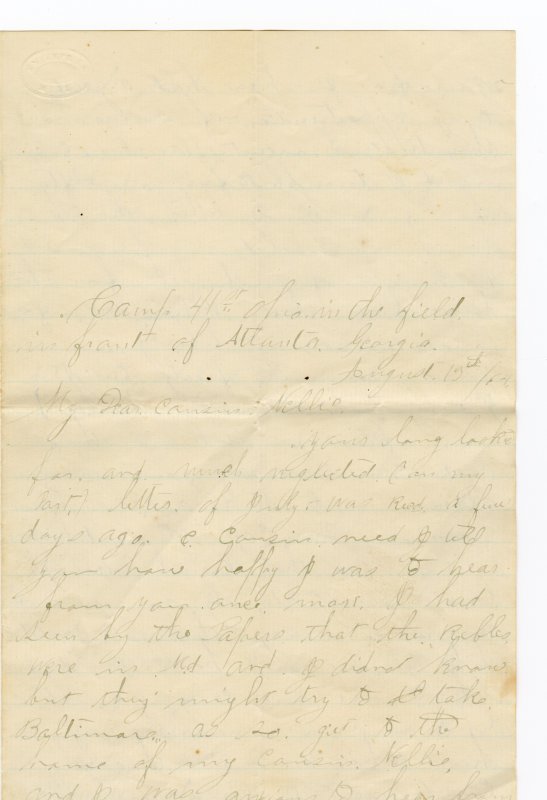 Camp 41st Ohio in the field.
in front of Atlanta. Georgia.
August. 13th /64.
My Dear Cousin Nellie.
yours long looked
for. and much neglected (on my
Part,) letter. of July. was Recd. a few
days ago. Cousin need I tell
you how happy I was to hear
from you once. more. I had
seen by the Papers that the Rebbles
were in Md and I didnt know
but they might try to take
Baltimore, as to get to the
home of my Cousin. Nellie,
and I was anxious to hear from